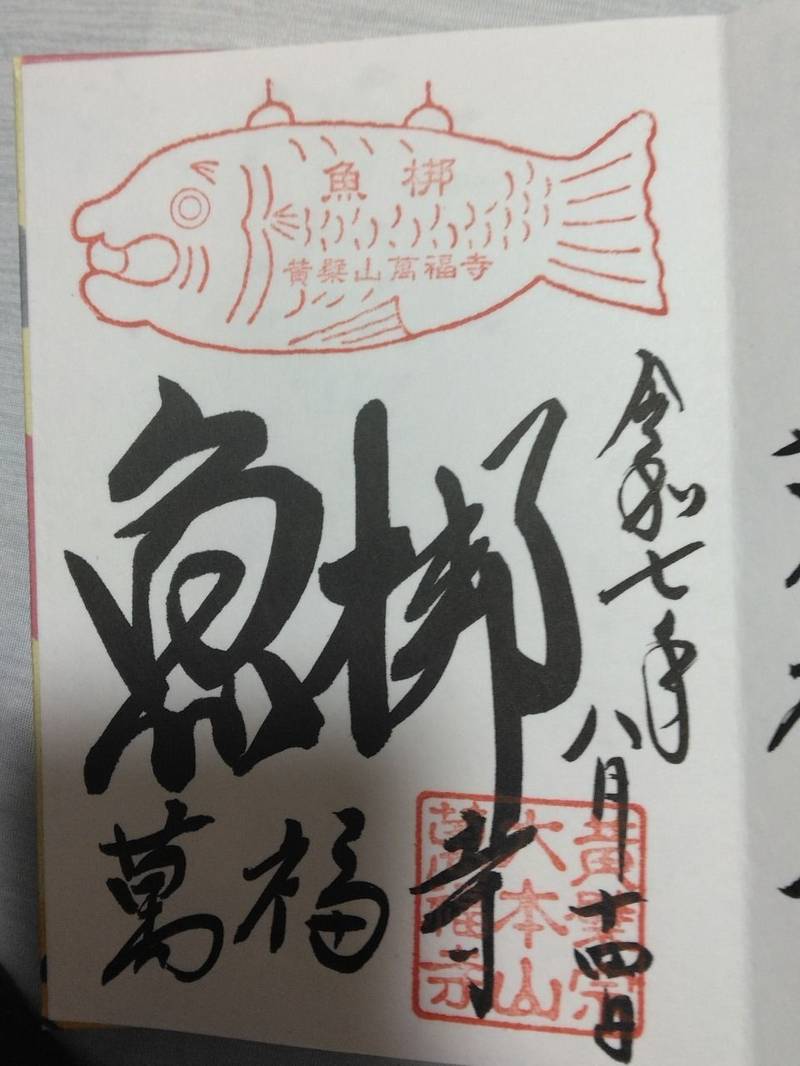 魚梆
黄檗山萬福寺
魚梆
萬福寺
令和七年八月十四日
黄檗宗
大本山
萬福寺